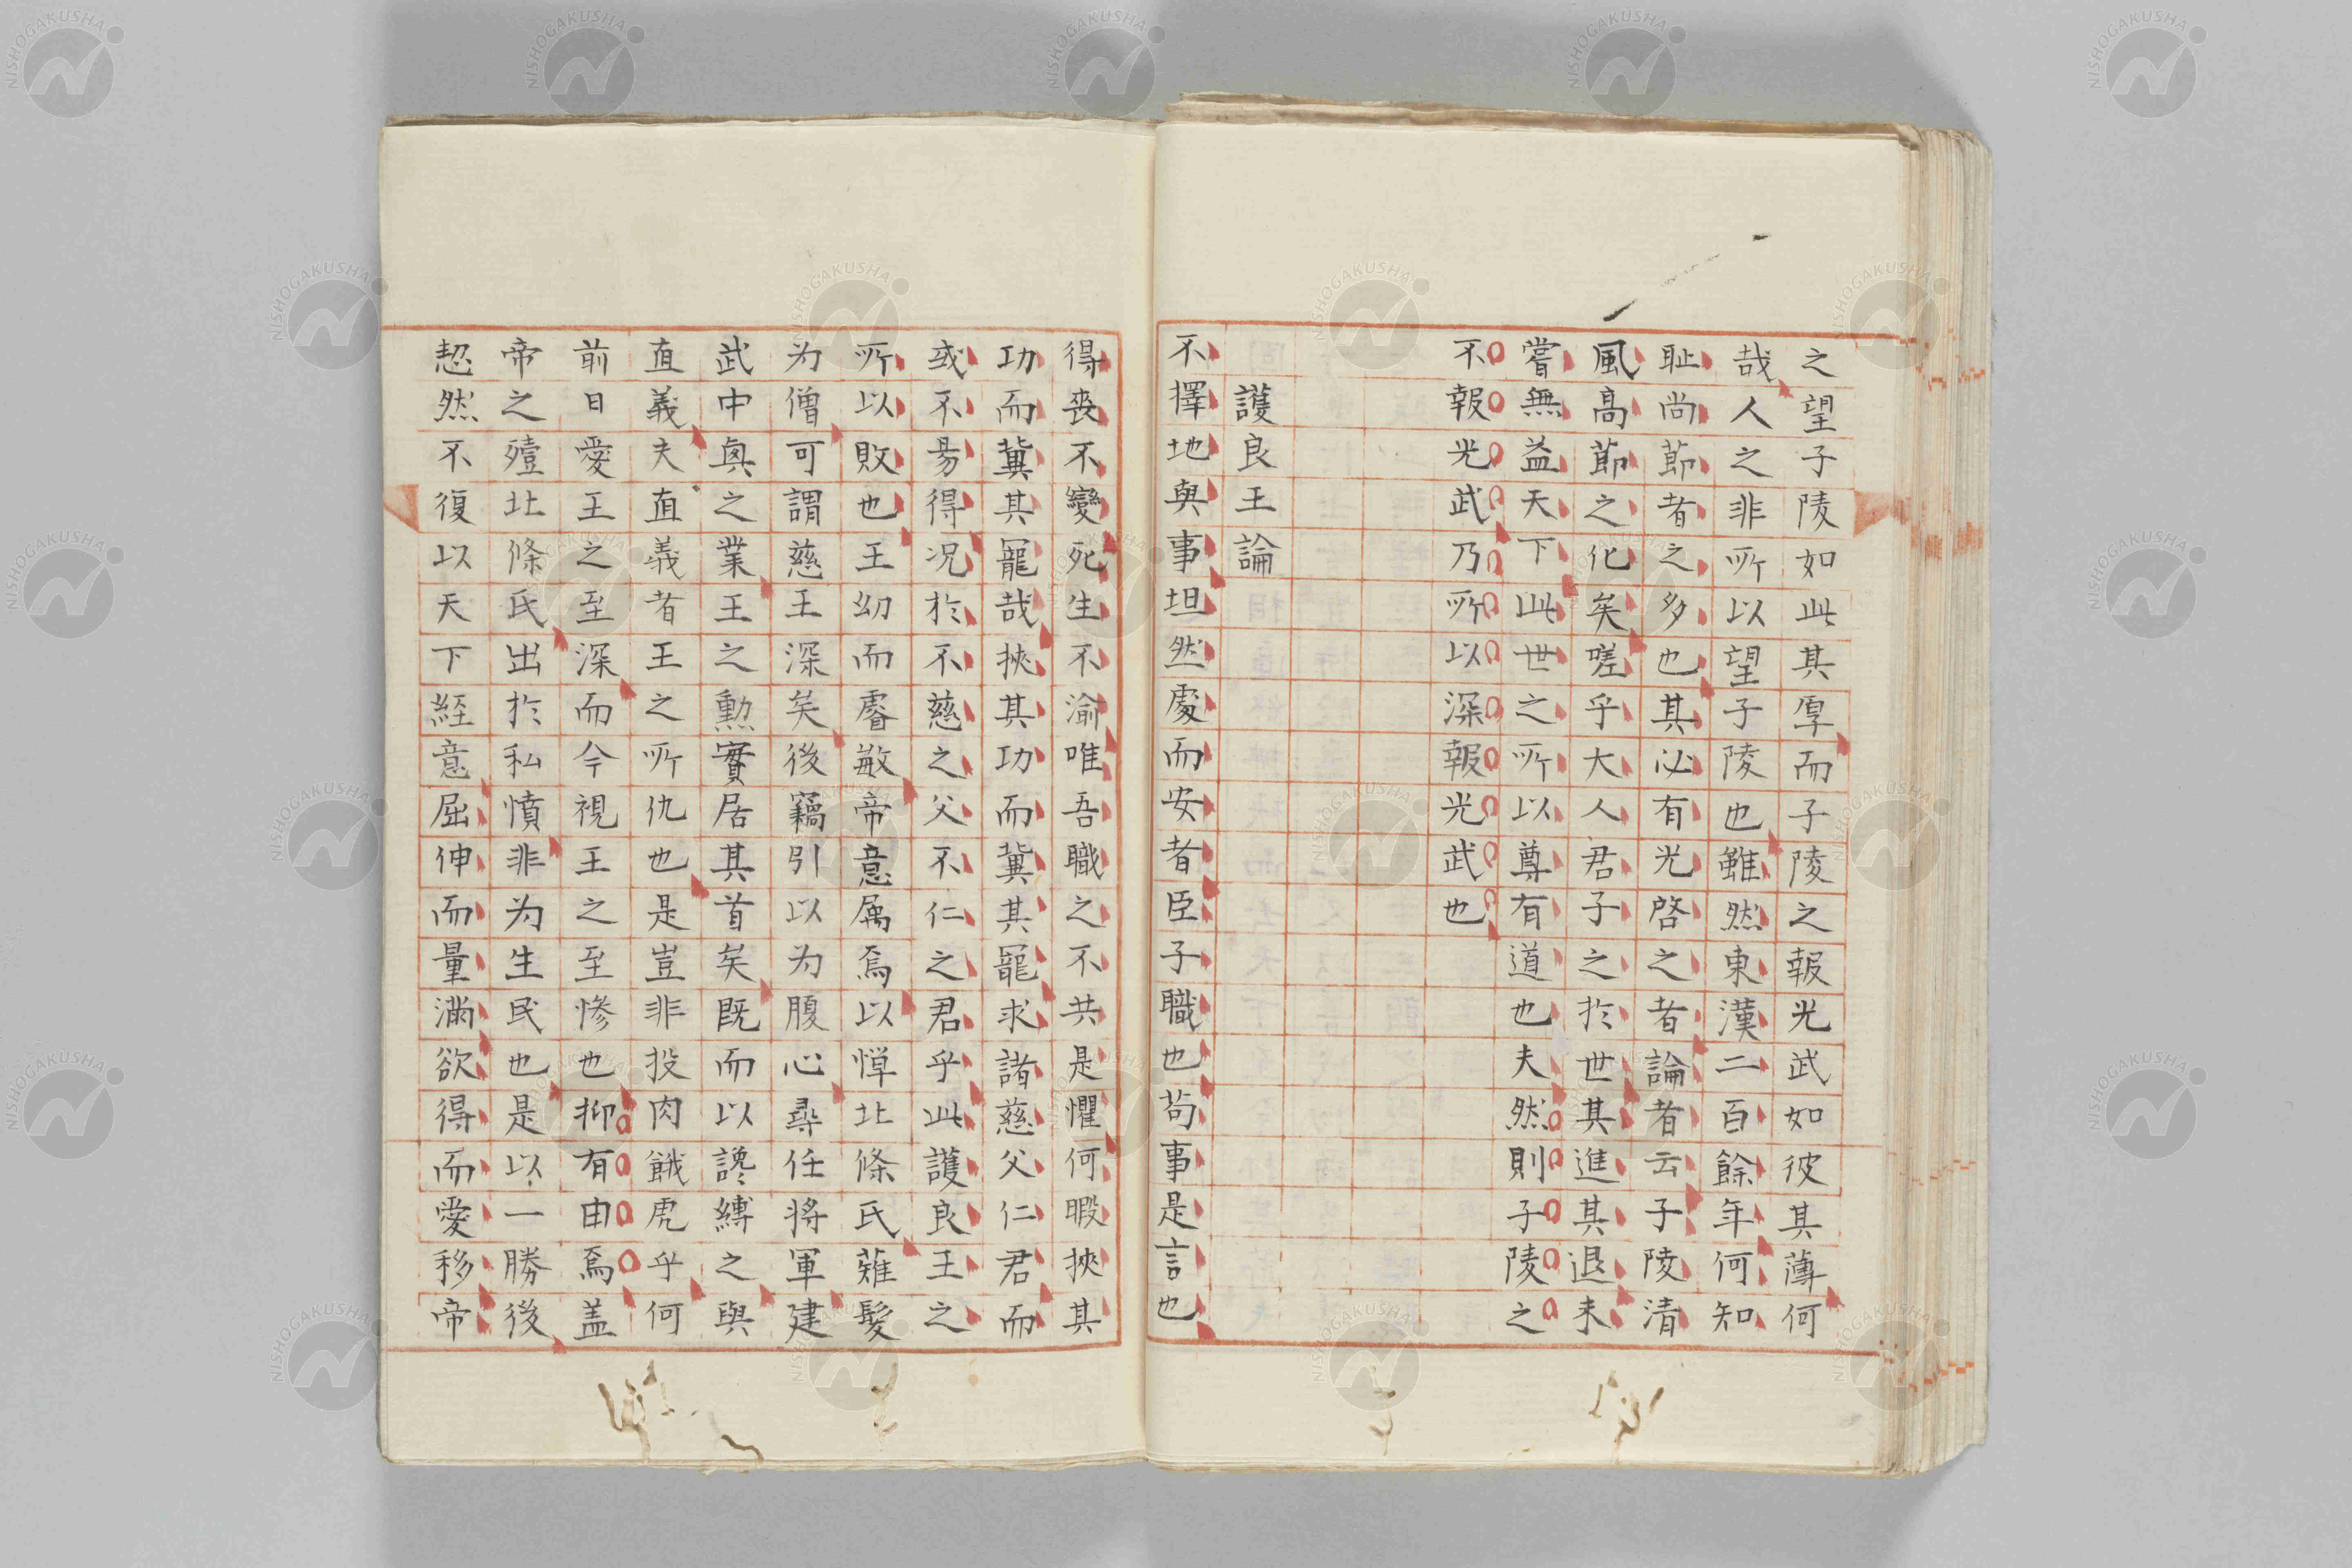 之望子陵如此其厚而子陵之報光武如彼其薄何
哉人之非所以望子陵也雖然東漢二百餘年何知
耻尚節者之多也其必有光啓之者論者云子陵清
風高節之化矣嗟乎大人君子之於世其進其退未
嘗無益天下此世之所以尊有道也夫然則子陵之
不報光武乃所以深報光武也
護良王論
不擇地與事坦然處而安者臣子職也苟事是言也
得喪不變死生不渝唯吾職之不共是懼何暇挾其
功而冀其寵哉挾其功而冀其寵求諸慈父仁君而
或不易得况於不慈之父不仁之君乎此護良王之
所以敗也王幼而睿敏帝意属焉以憚北條氏薙髮
为僧可謂慈王深矣後竊引以为腹心尋任将軍建
武中興之業王之勲實居其首矣既而以讒縛之與
直義夫直義者王之所仇也是豈非投肉餓虎乎何
前日愛王之至深而今視王之至惨也抑有由焉盖
帝之殪北條氏出於私憤非为生民也是以一勝後
恝然不復以天下経意屈伸而量滿欲得而愛移帝
NISHOGAKUSHA